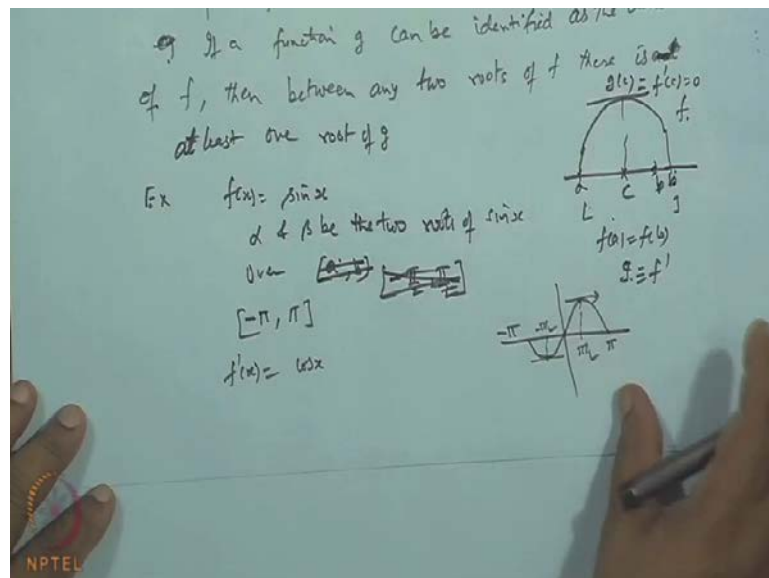 If a function g can be identified as the
of f, then between any two roots of f there is
at least one root of g
g(c) = f'(c) = 0
f.
a c b b
L J
f(a) = f(b)
g ≡ f'
Ex f(x) = sin x
α & β be the two roots of sin x
Over
[-π, π]
f'(x) = cos x
-π -π/2 π/2 π
NPTEL